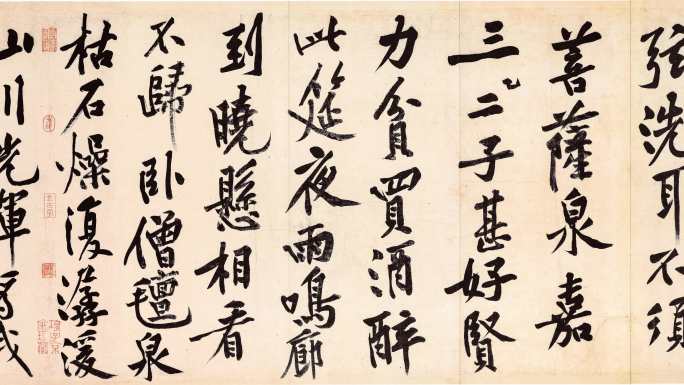 弦洗耳不須
菩薩泉嘉
三二子甚好賢
力貧買酒醉
此筵夜雨鳴廊
到曉懸相看
不歸卧僧氊泉
枯石燥復潺湲
山川光輝為我